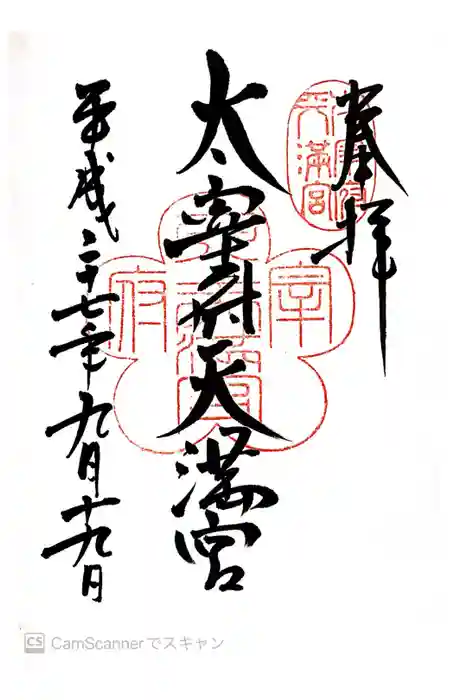 奉拝
太宰府天満宮
平成二十七年九月十九日
天満宮
宰
府
CamScannerでスキャン